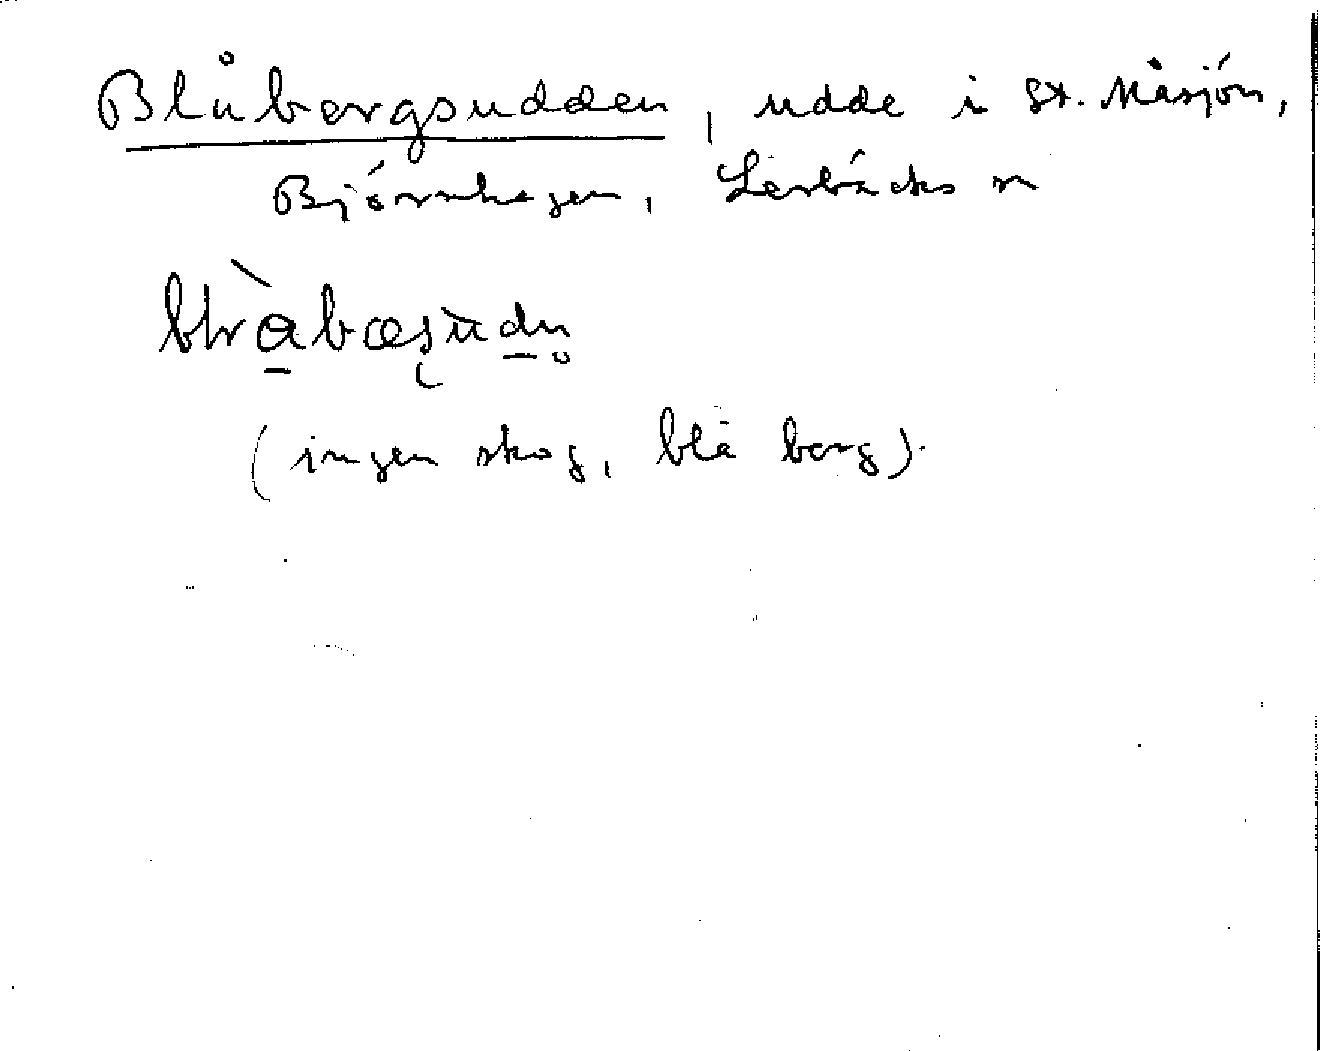 Blåbergsudden, udde i St. Måsjön,
Björnhagen, Lerbäcks sn
(ingen skog, blå berg).